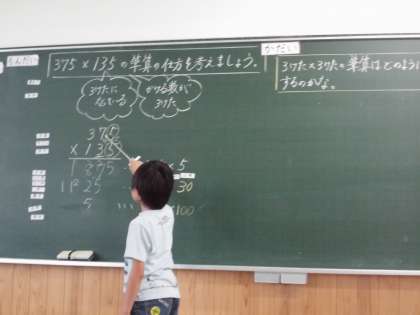 もんだい
375×135の筆算の仕方を考えましょう。
かだい
3けた×3けたの筆算はどのように
するのかな。
3けたに
なっている
かける数が
3けた
375
×135
1875 … ×5
1125 … 30
5 … ×100